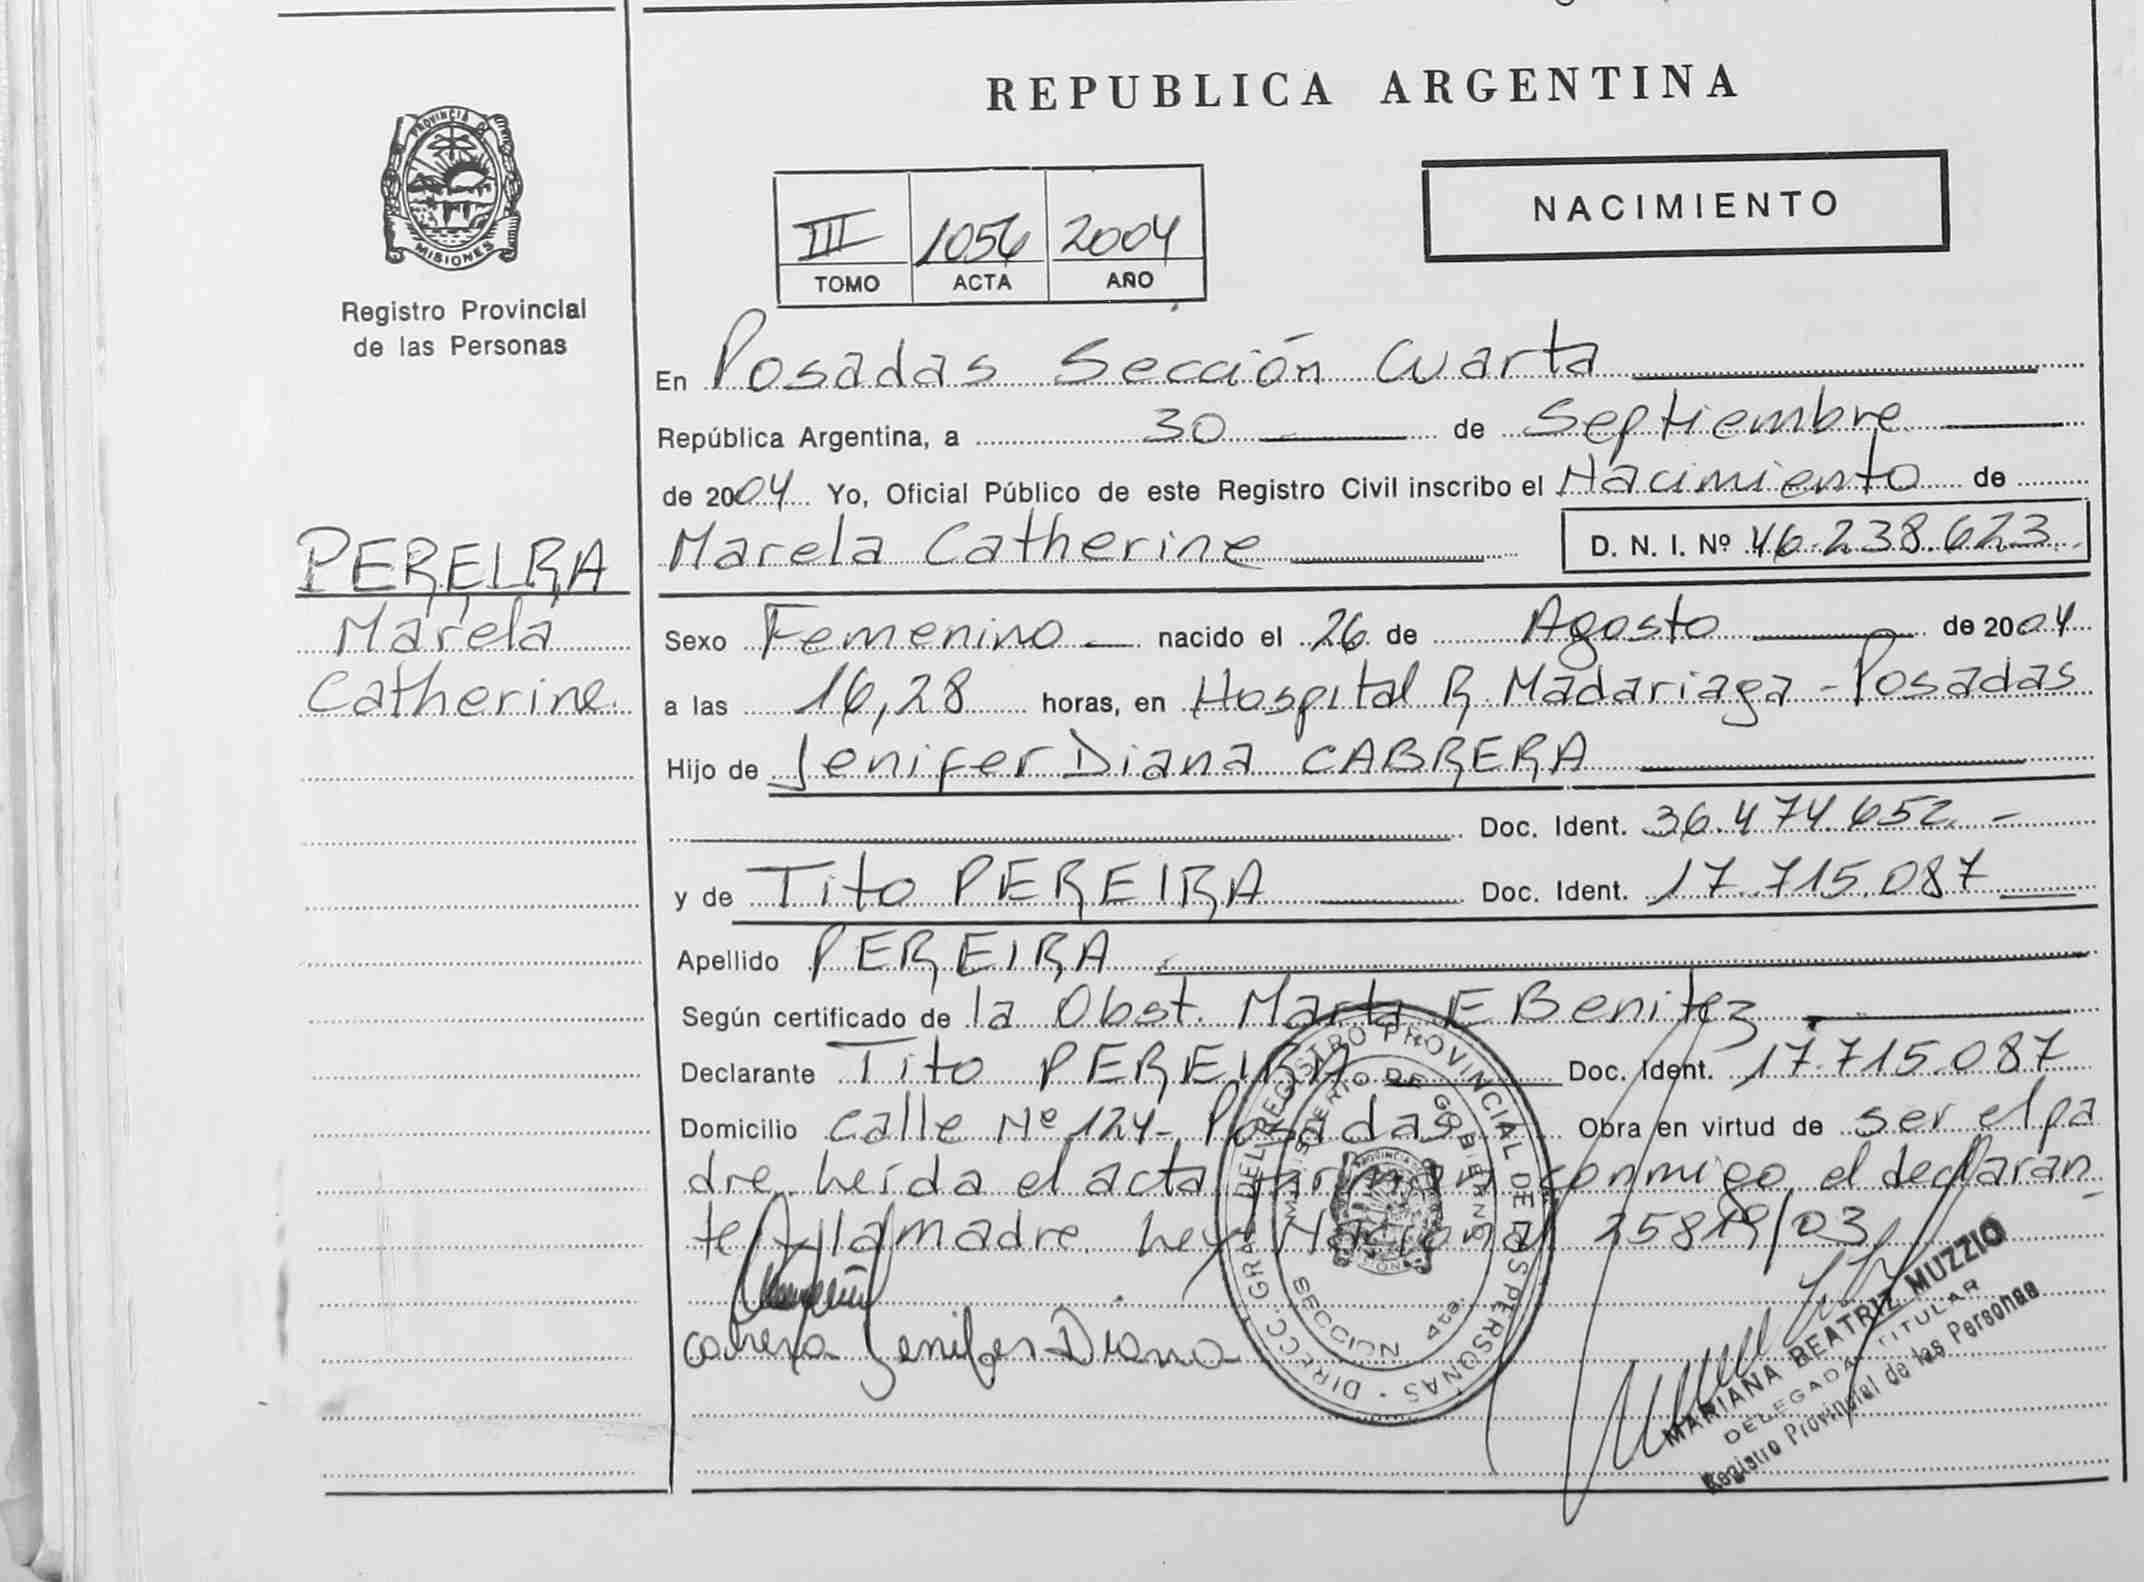 REPUBLICA ARGENTINA
PROVINCIA D
MISIONES
Registro Provincial
de las Personas
NACIMIENTO
III 1056 2004
TOMO ACTA AÑO
En Posadas Sección Cuarta
República Argentina, a 30 de Septiembre
de 2004 Yo, Oficial Público de este Registro Civil inscribo el Nacimiento de
Marela Catherine D. N. I. Nº 46.238.623.
PEREIRA
Marela
Catherine.
Sexo Femenino nacido el 26 de Agosto de 2004
a las 16,28 horas, en Hospital R. Madariaga - Posadas
Hijo de Jenifer Diana CABRERA
Doc. Ident. 36.474.652. -
y de Tito PEREIRA Doc. Ident. 17.715.087
Apellido PEREIRA
Según certificado de la Obst. Marta E Benitez
Declarante Tito PEREIRA Doc. Ident. 17.715.087
Domicilio calle Nº 124 - Posadas Obra en virtud de ser el pa
dre. Leída el acta firman conmigo el declaran
te y la madre. Ley Nacional 25819/03
Cabrera Jenifer Diana
DIRECC. GRAL. DEL REGISTRO PROVINCIAL DE LAS PERSONAS
MINISTERIO DE GOBIERNO
SECCION 4ta.
MARIANA BEATRIZ MUZZIO
DELEGADA TITULAR
Registro Provincial de las Personas